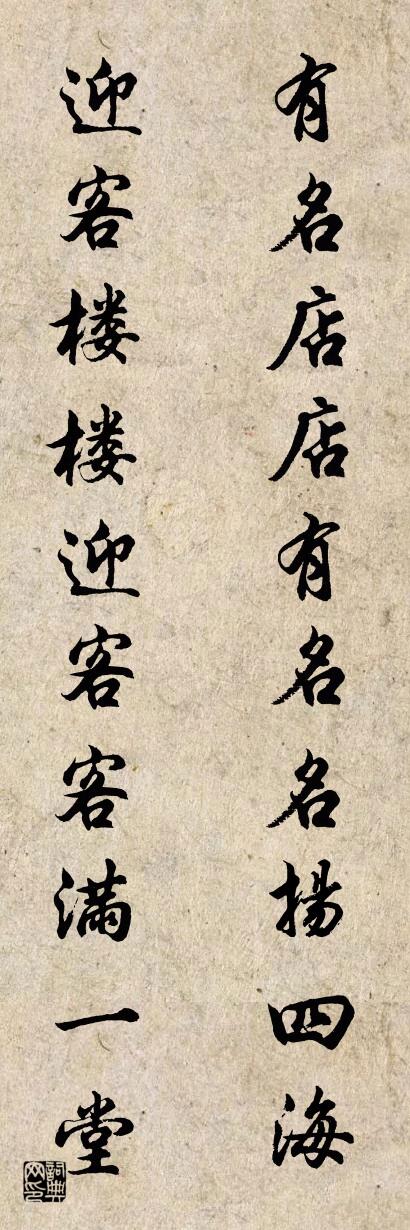 有名店店有名名揚四海
迎客楼楼迎客客滿一堂
詞典网印